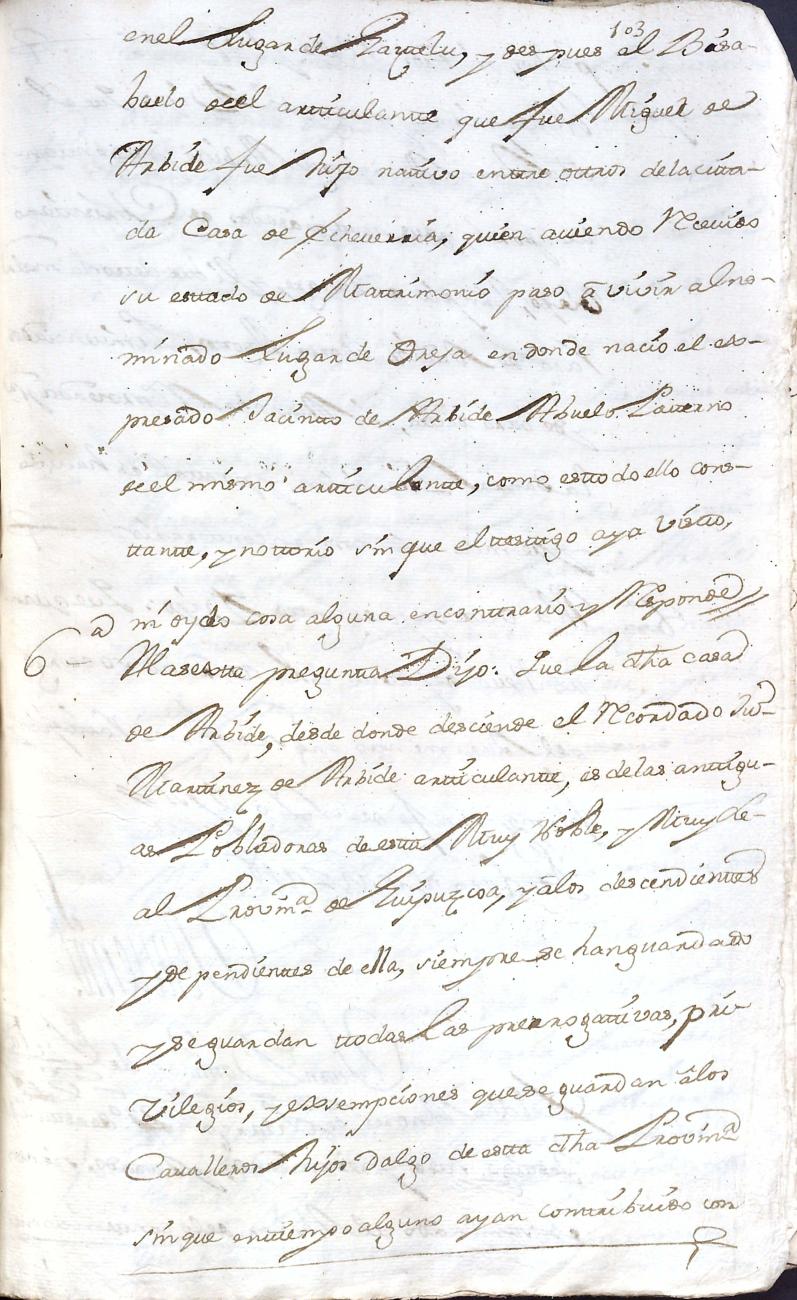 103
en el Lugar de Gaztelu, y des pues al Bisa-
buelo deel artticulantte que fue Miguel de
Arbide fue hijo nattivo enttre ottros de la citta-
da Casa de Echeverria, quien aviendo Rcevido
su esttado de Mattrimonio paso â vivir al no-
minado Lugar de Oreja en donde nacio el ex-
presado Jacintto de Arbide Abuelo Patterno
deel mismo artticulantte, como es ttodo ello cons-
ttantte, y nottorio sin que el ttesttigo aya visto,
ni oydo cosa alguna en conttrario y Responde
6ª A la sestta preguntta Dijo: Que la dha casa
de Arbide, desde donde desciende el Rcordado Juº
Marttinez de Arbide artticulantte, es de las anttigu-
as Pobladoras de estta Muy Noble, y Muy Le-
al Provinª de Guipuzcoa, y â los descendienttes
y de pendienttes de ella, siempre se han guardado
y se guardan ttodas las prerrogativas, pri-
vilegios, y exsempciones que se guardan â los
Cavalleros hijos dalgo de estta dha Provinª
sin que en ttiempo alguno ayan conttribuido con